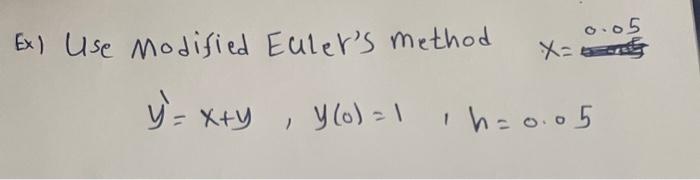 Ex) Use Modified Euler's method x= 0.05
y'= x+y , y(0)=1 , h=0.05